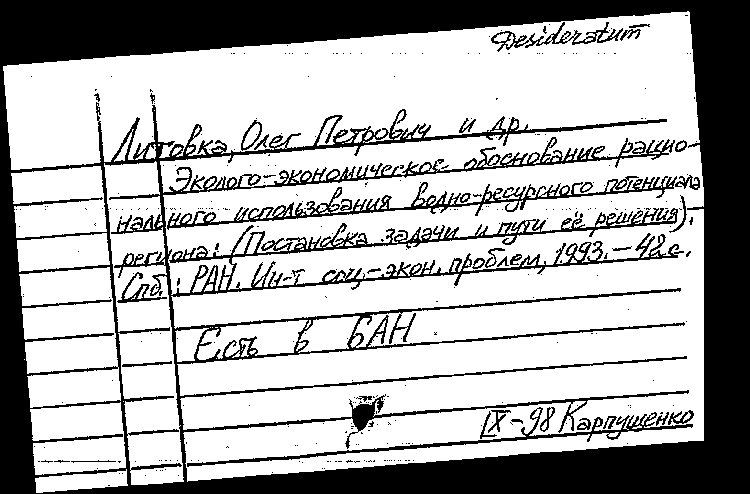 Desideratum
Литовка, Олег Петрович и др.
Эколого-экономическое обоснование рацио-
нального использования водно-ресурсного потенциала
региона: (Постановка задачи и пути её решения).
Спб.: РАН. Ин-т соц.-экон. проблем, 1993. – 42 с.
Есть в БАН
IX-98 Карпушенко